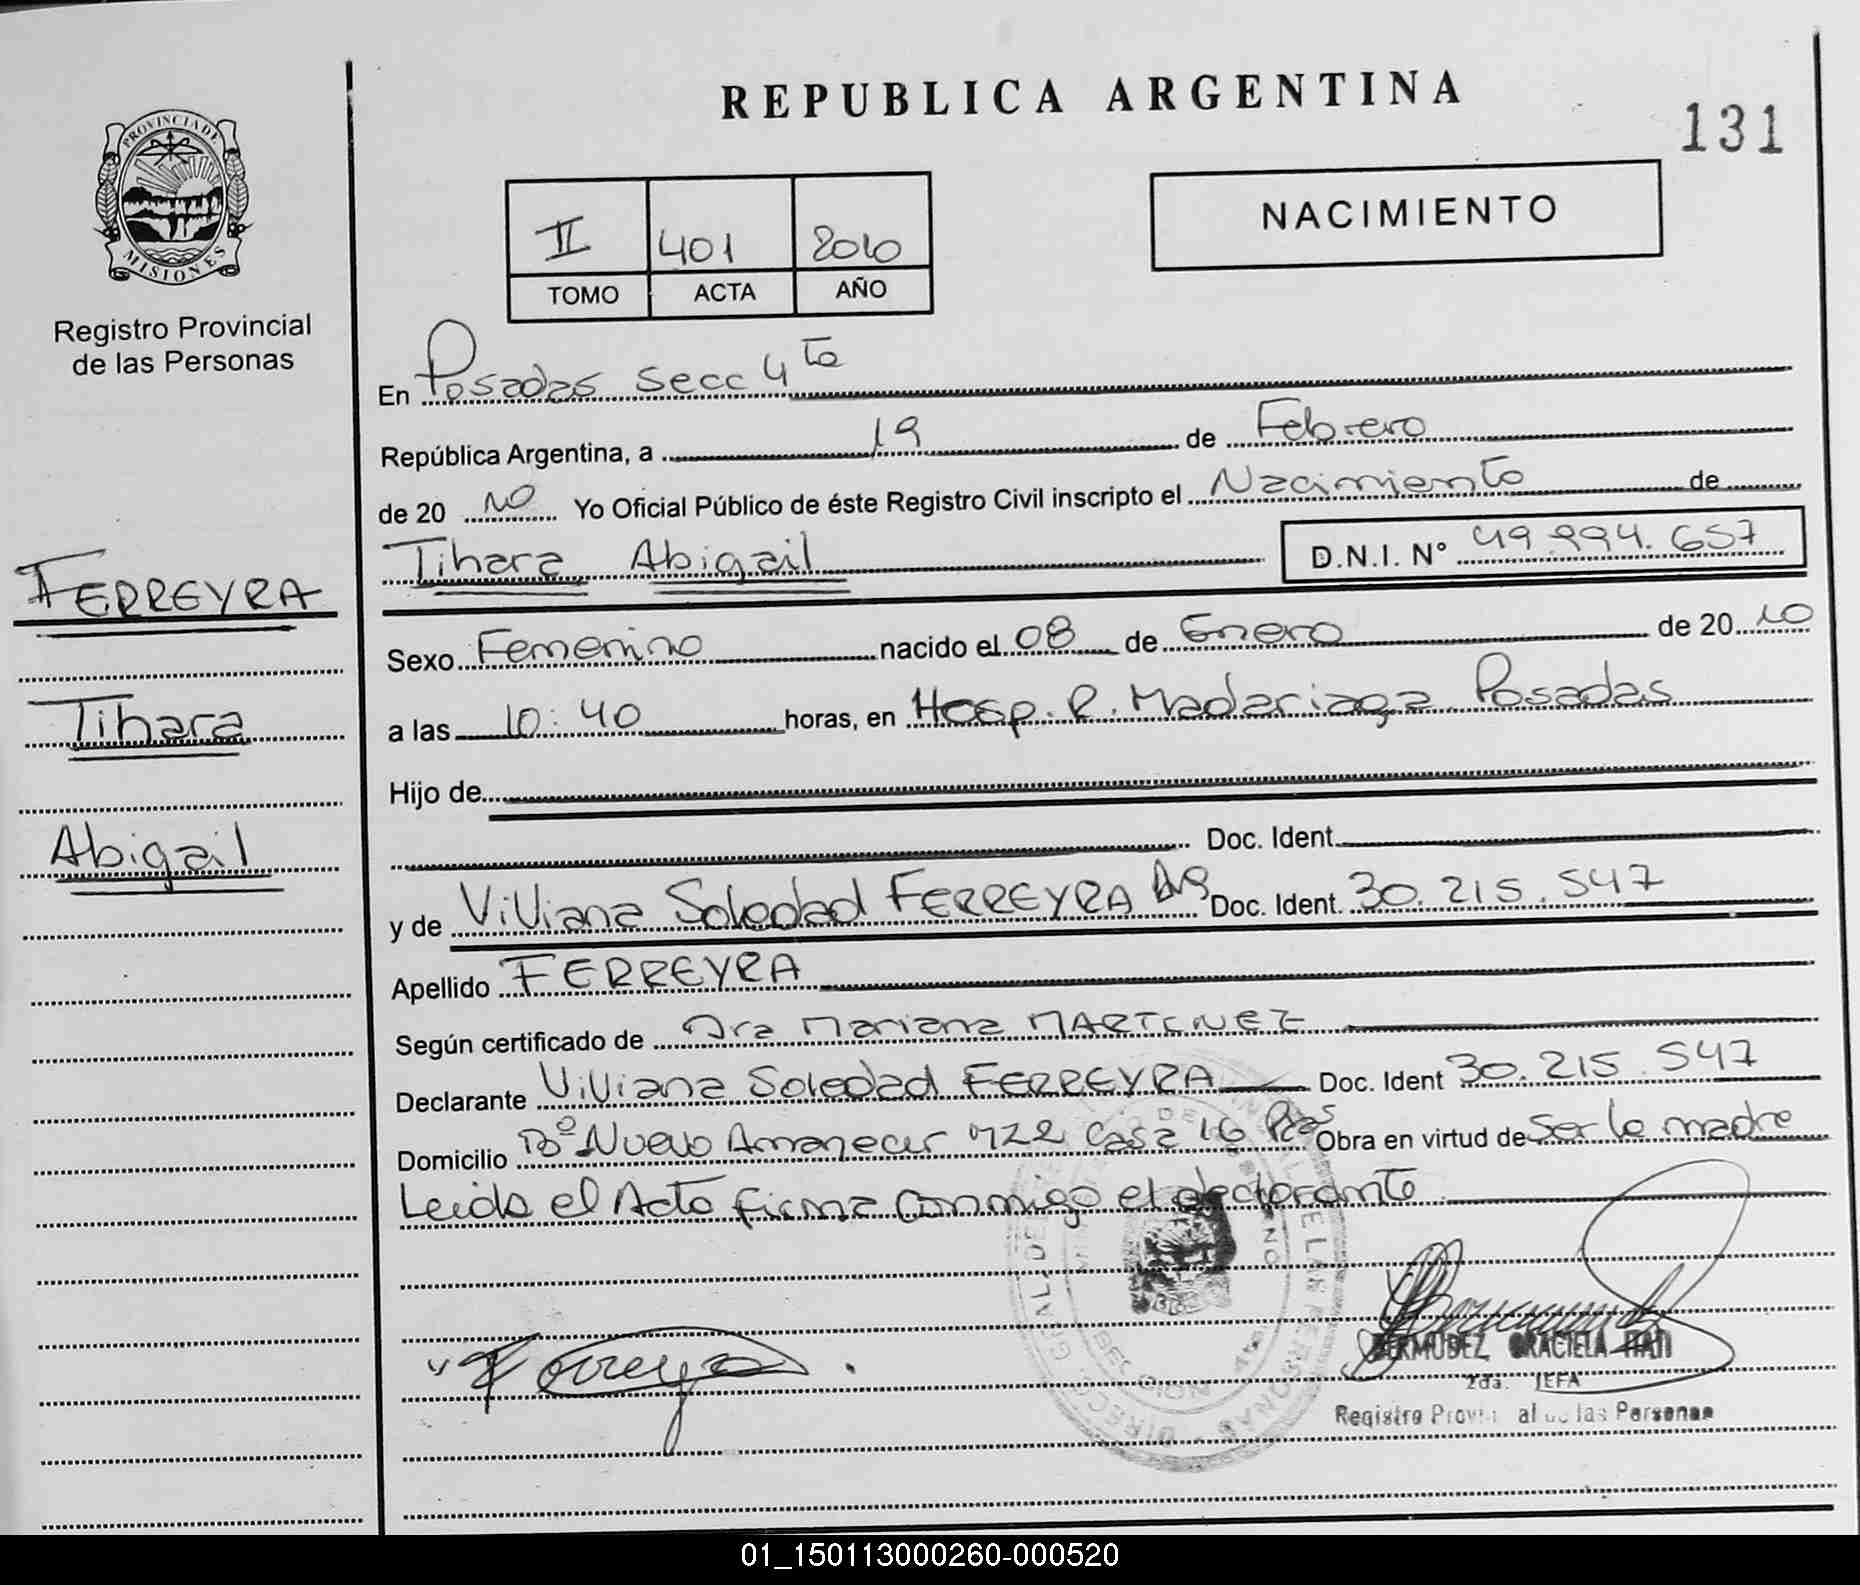 REPUBLICA ARGENTINA
131
PROVINCIA DE
MISIONES
Registro Provincial
de las Personas
II 401 2010
TOMO ACTA AÑO
NACIMIENTO
En Posadas Secc 4ta
República Argentina, a 19 de Febrero
de 20 10 Yo Oficial Público de éste Registro Civil inscripto el Nacimiento de
Tihara Abigail D.N.I. N° 49.994.657
FERREYRA
Tihara
Abigail
Sexo Femenino nacido el 08 de Enero de 20 10
a las 10:40 horas, en Hosp. R. Madariaga Posadas
Hijo de
Doc. Ident.
y de Viviana Soledad FERREYRA Arg Doc. Ident. 30.215.547
Apellido FERREYRA
Según certificado de Dra Mariana MARTINEZ
Declarante Viviana Soledad FERREYRA Doc. Ident 30.215.547
Domicilio Bº Nuevo Amanecer Mz2 Casa 16 Pdas Obra en virtud de Ser la madre
Leida el Acta firma conmigo el declarante
Ferreyra
BERMUDEZ GRACIELA
2da. JEFA
Registro Provincial de las Personas
01_150113000260-000520